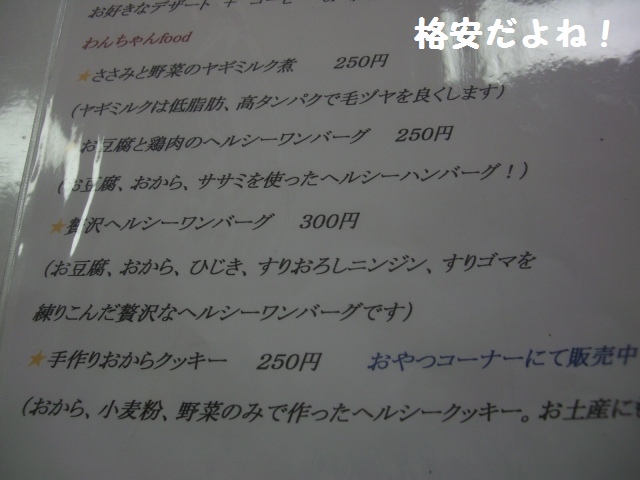 お好きなデザート + コーヒー
格安だよね！
わんちゃんfood
★ささみと野菜のヤギミルク煮 250円
(ヤギミルクは低脂肪、高タンパクで毛ヅヤを良くします)
お豆腐と鶏肉のヘルシーワンバーグ 250円
(お豆腐、おから、ササミを使ったヘルシーハンバーグ！)
★贅沢ヘルシーワンバーグ 300円
(お豆腐、おから、ひじき、すりおろしニンジン、すりゴマを
練りこんだ贅沢なヘルシーワンバーグです)
★手作りおからクッキー 250円 おやつコーナーにて販売中
(おから、小麦粉、野菜のみで作ったヘルシークッキー。お土産に